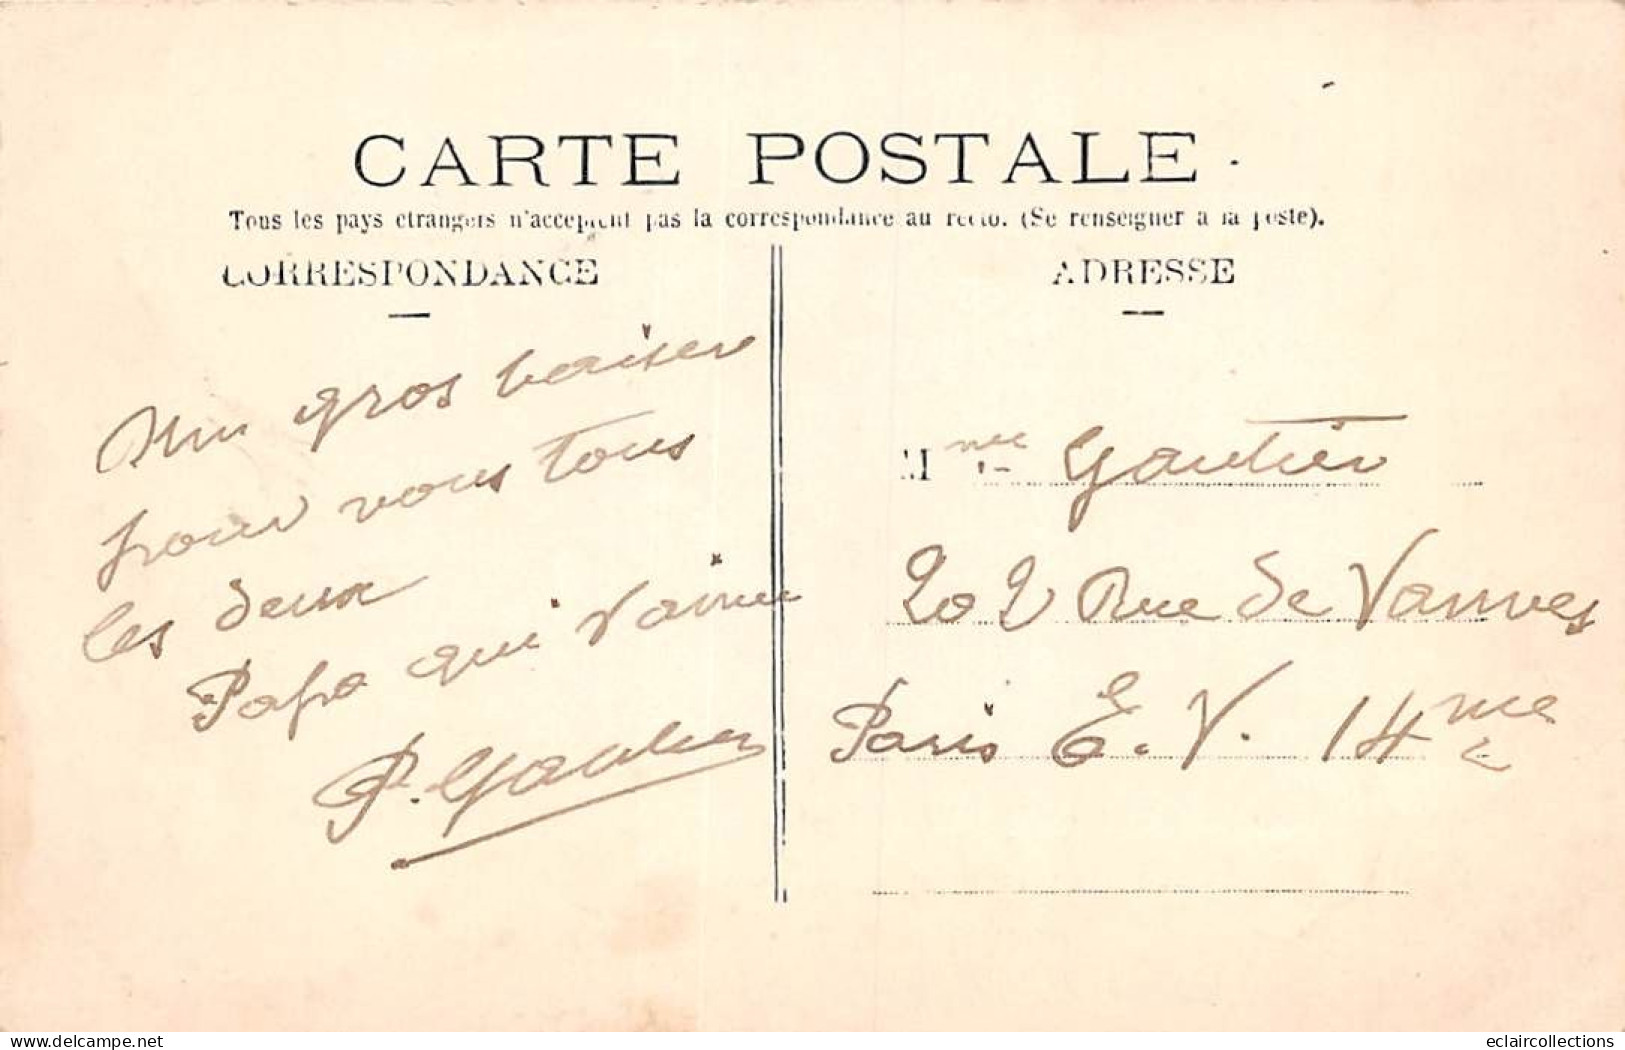 CARTE POSTALE
Tous les pays étrangers n'acceptent pas la correspondance au recto. (Se renseigner à la poste).
CORRESPONDANCE
ADRESSE
Un gros baiser
pour vous tous
les deux
Papa qui t'aime
P. Gautier
Mme Gautier
202 Rue de Vanves
Paris E.V. 14me
delcampe.net
eclaircollections